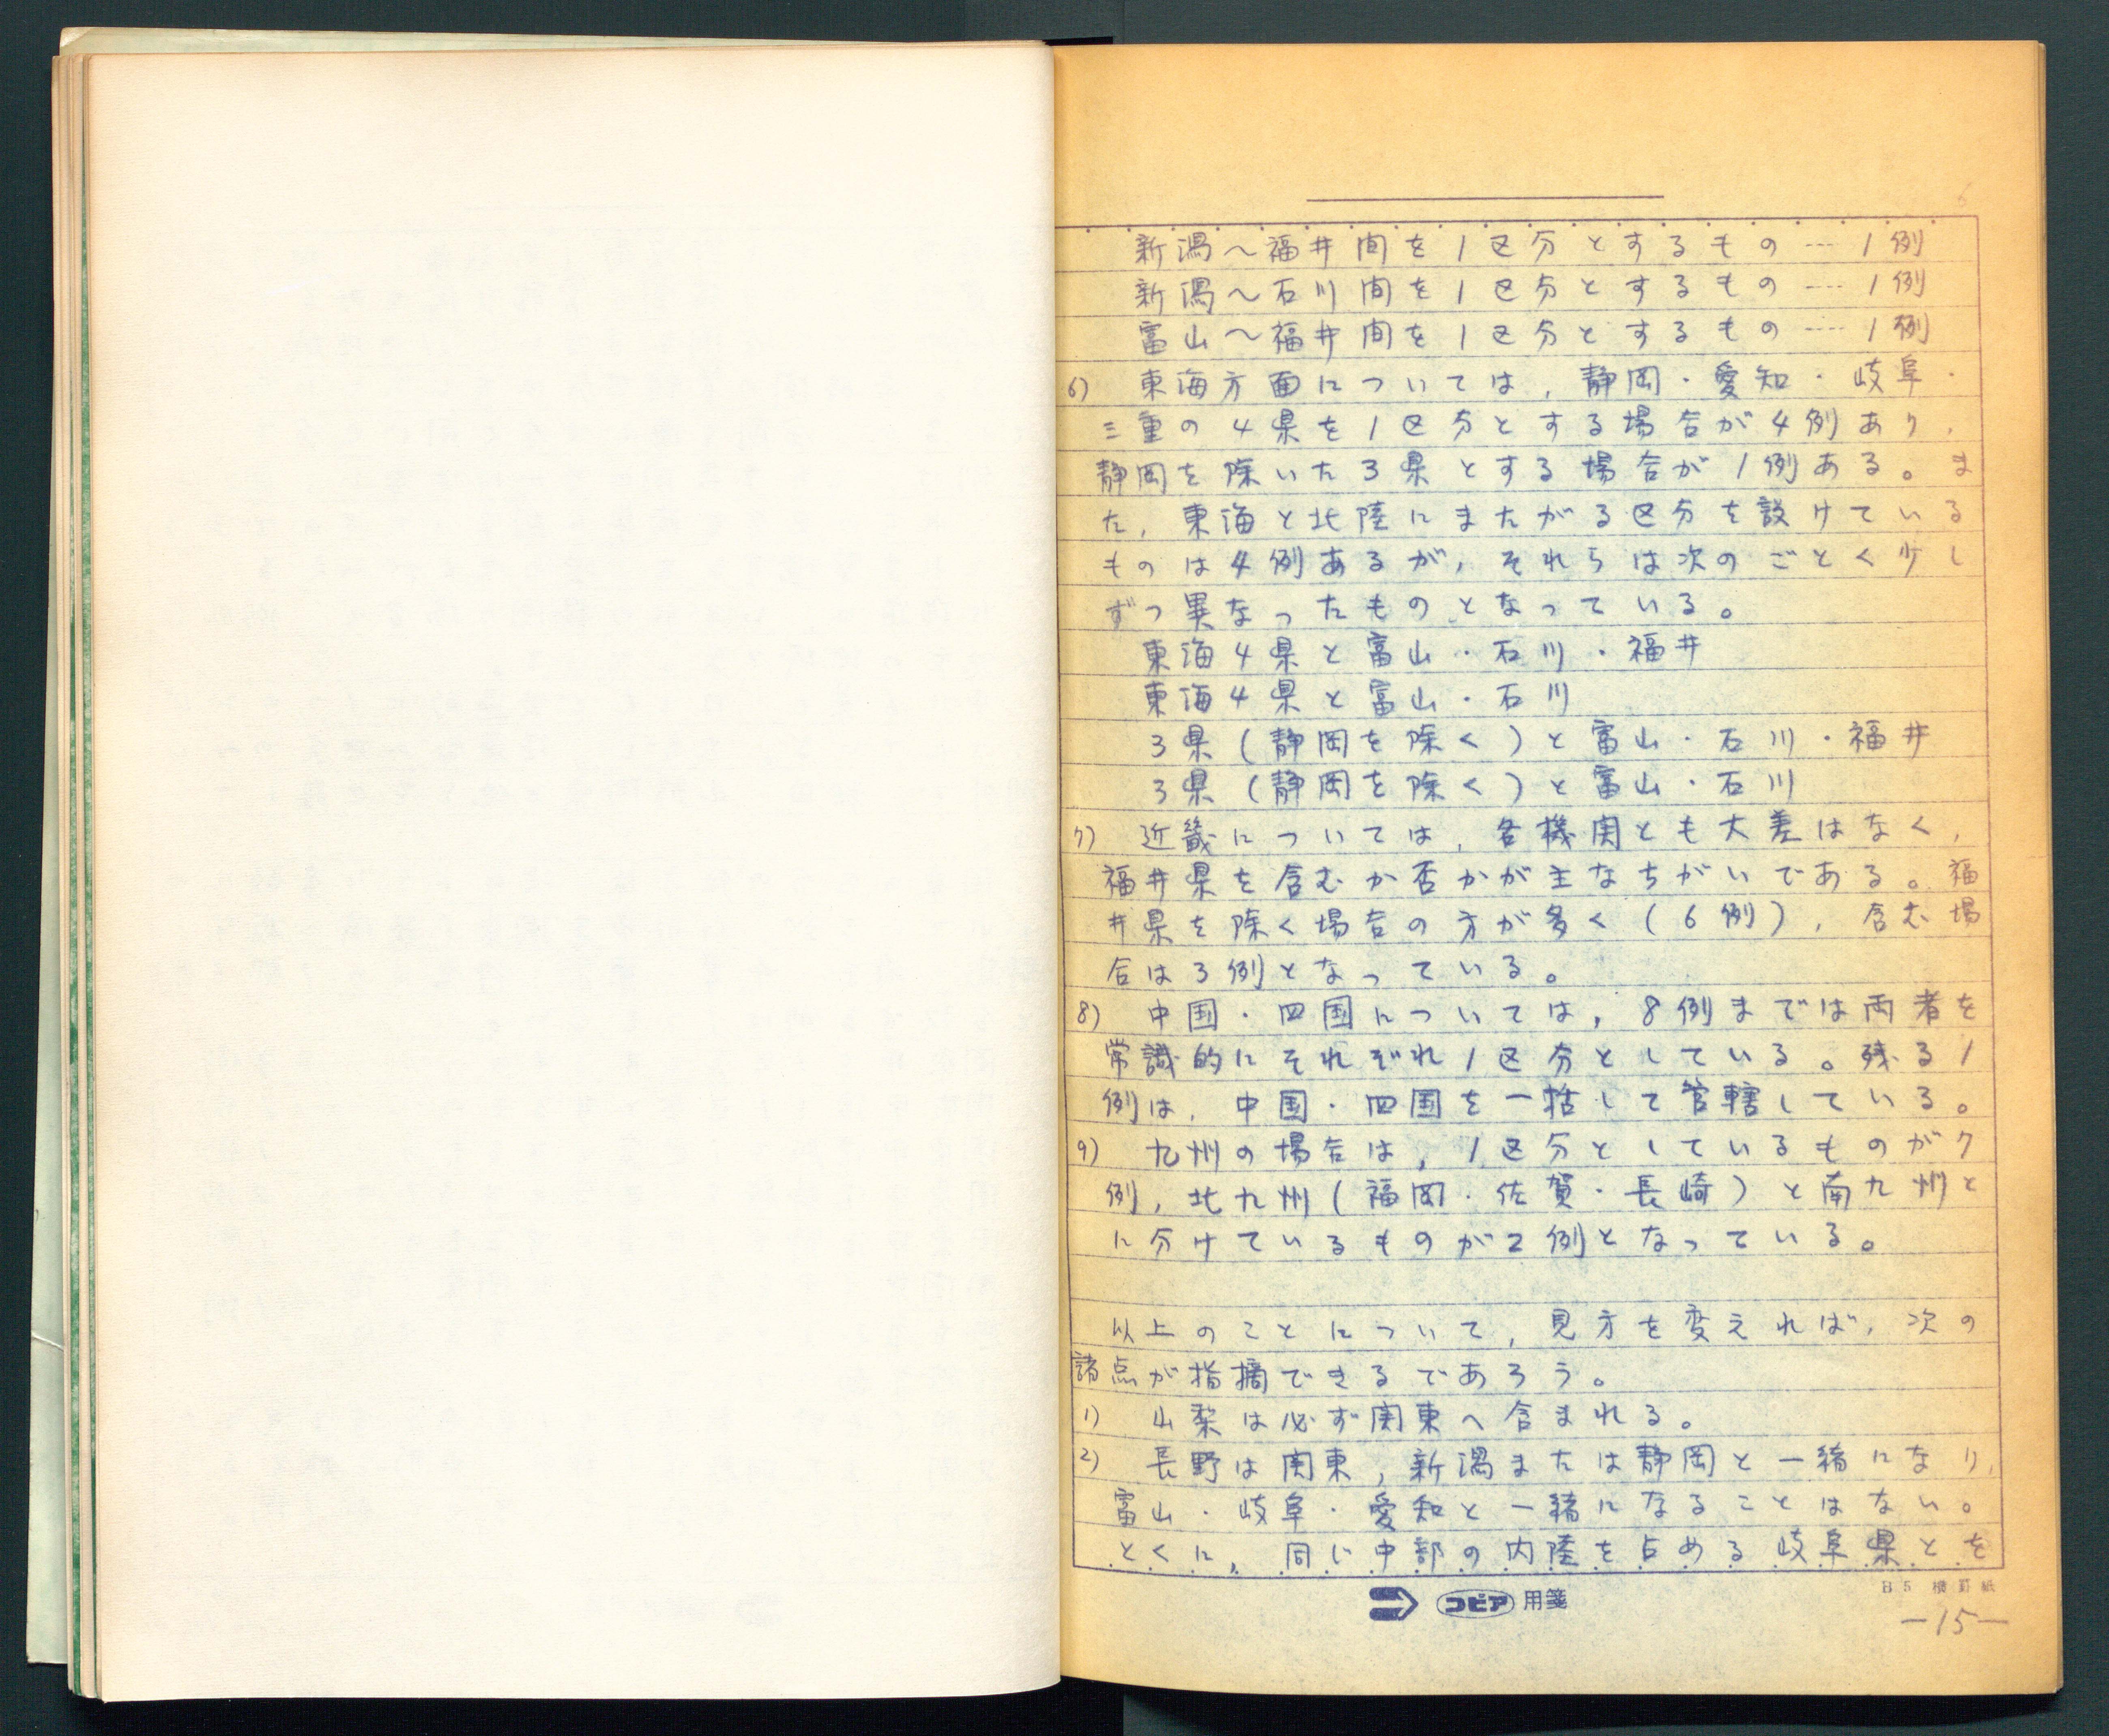 6
新潟〜福井間を1区分とするもの……1例
新潟〜石川間を1区分とするもの……1例
富山〜福井間を1区分とするもの……1例
6) 東海方面については,静岡・愛知・岐阜・
三重の4県を1区分とする場合が4例あり,
静岡を除いた3県とする場合が1例ある。ま
た,東海と北陸にまたがる区分を設けている
ものは4例あるが,それらは次のごとく少し
ずつ異なったものとなっている。
東海4県と富山・石川・福井
東海4県と富山・石川
3県(静岡を除く)と富山・石川・福井
3県(静岡を除く)と富山・石川
7) 近畿については,各機関とも大差はなく,
福井県を含むか否かが主なちがいである。福
井県を除く場合の方が多く(6例),含む場
合は3例となっている。
8) 中国・四国については,8例までは両者を
常識的にそれぞれ1区分としている。残る1
例は,中国・四国を一括して管轄している。
9) 九州の場合は,1区分としているものが7
例,北九州(福岡・佐賀・長崎)と南九州と
に分けているものが2例となっている。
以上のことについて,見方を変えれば,次の
諸点が指摘できるであろう。
1) 山梨は必ず関東へ含まれる。
2) 長野は関東,新潟または静岡と一緒になり,
富山・岐阜・愛知と一緒になることはない。
とくに,同じ中部の内陸を占める岐阜県とを
コピア用箋
B5 横罫紙
—15—